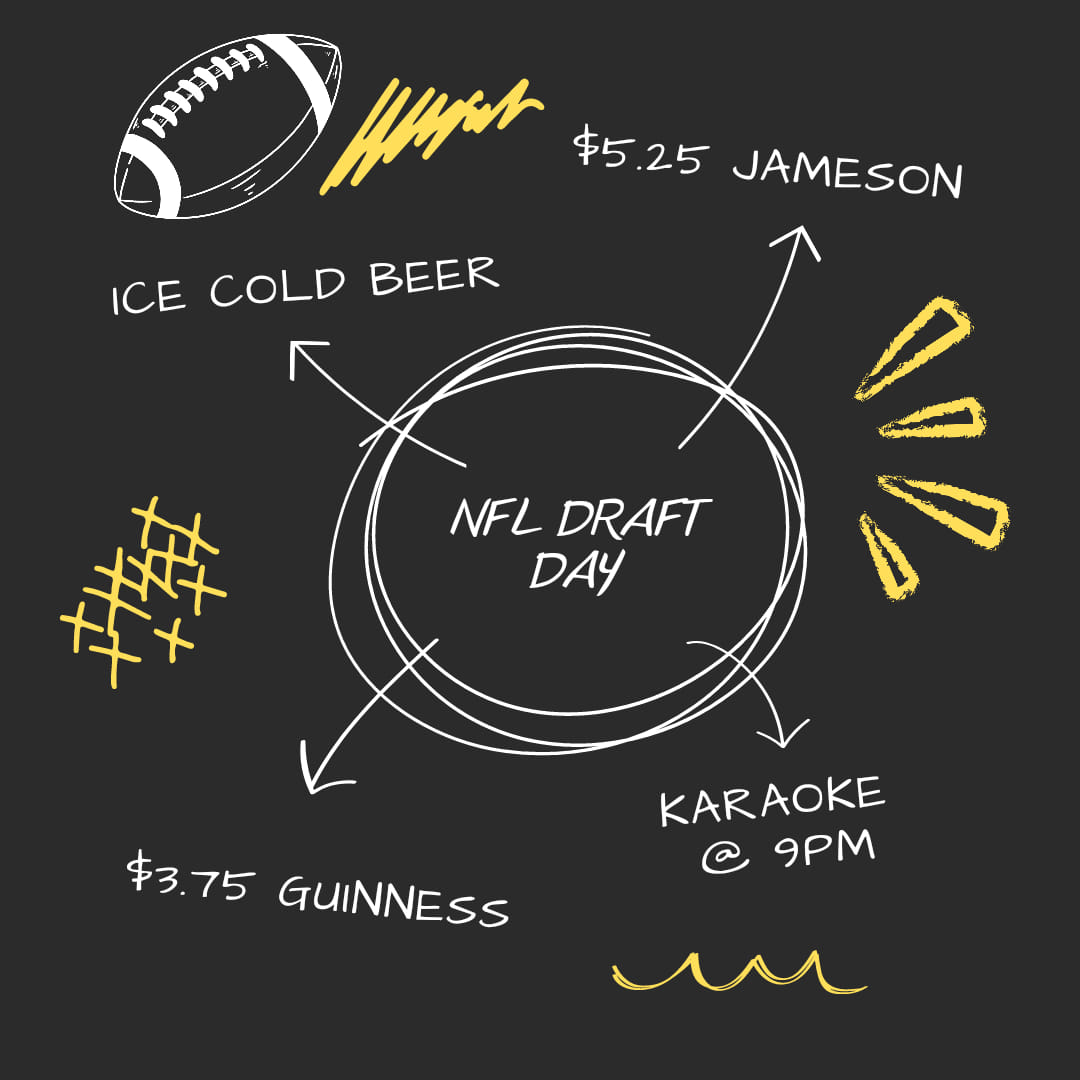 $5.25 JAMESON
ICE COLD BEER
NFL DRAFT
DAY
KARAOKE
@ 9PM
$3.75 GUINNESS